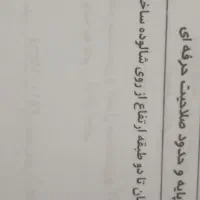 پایه و حدود صلاحیت حرفه ای
تا دو طبقه ارتفاع از روی شالوده